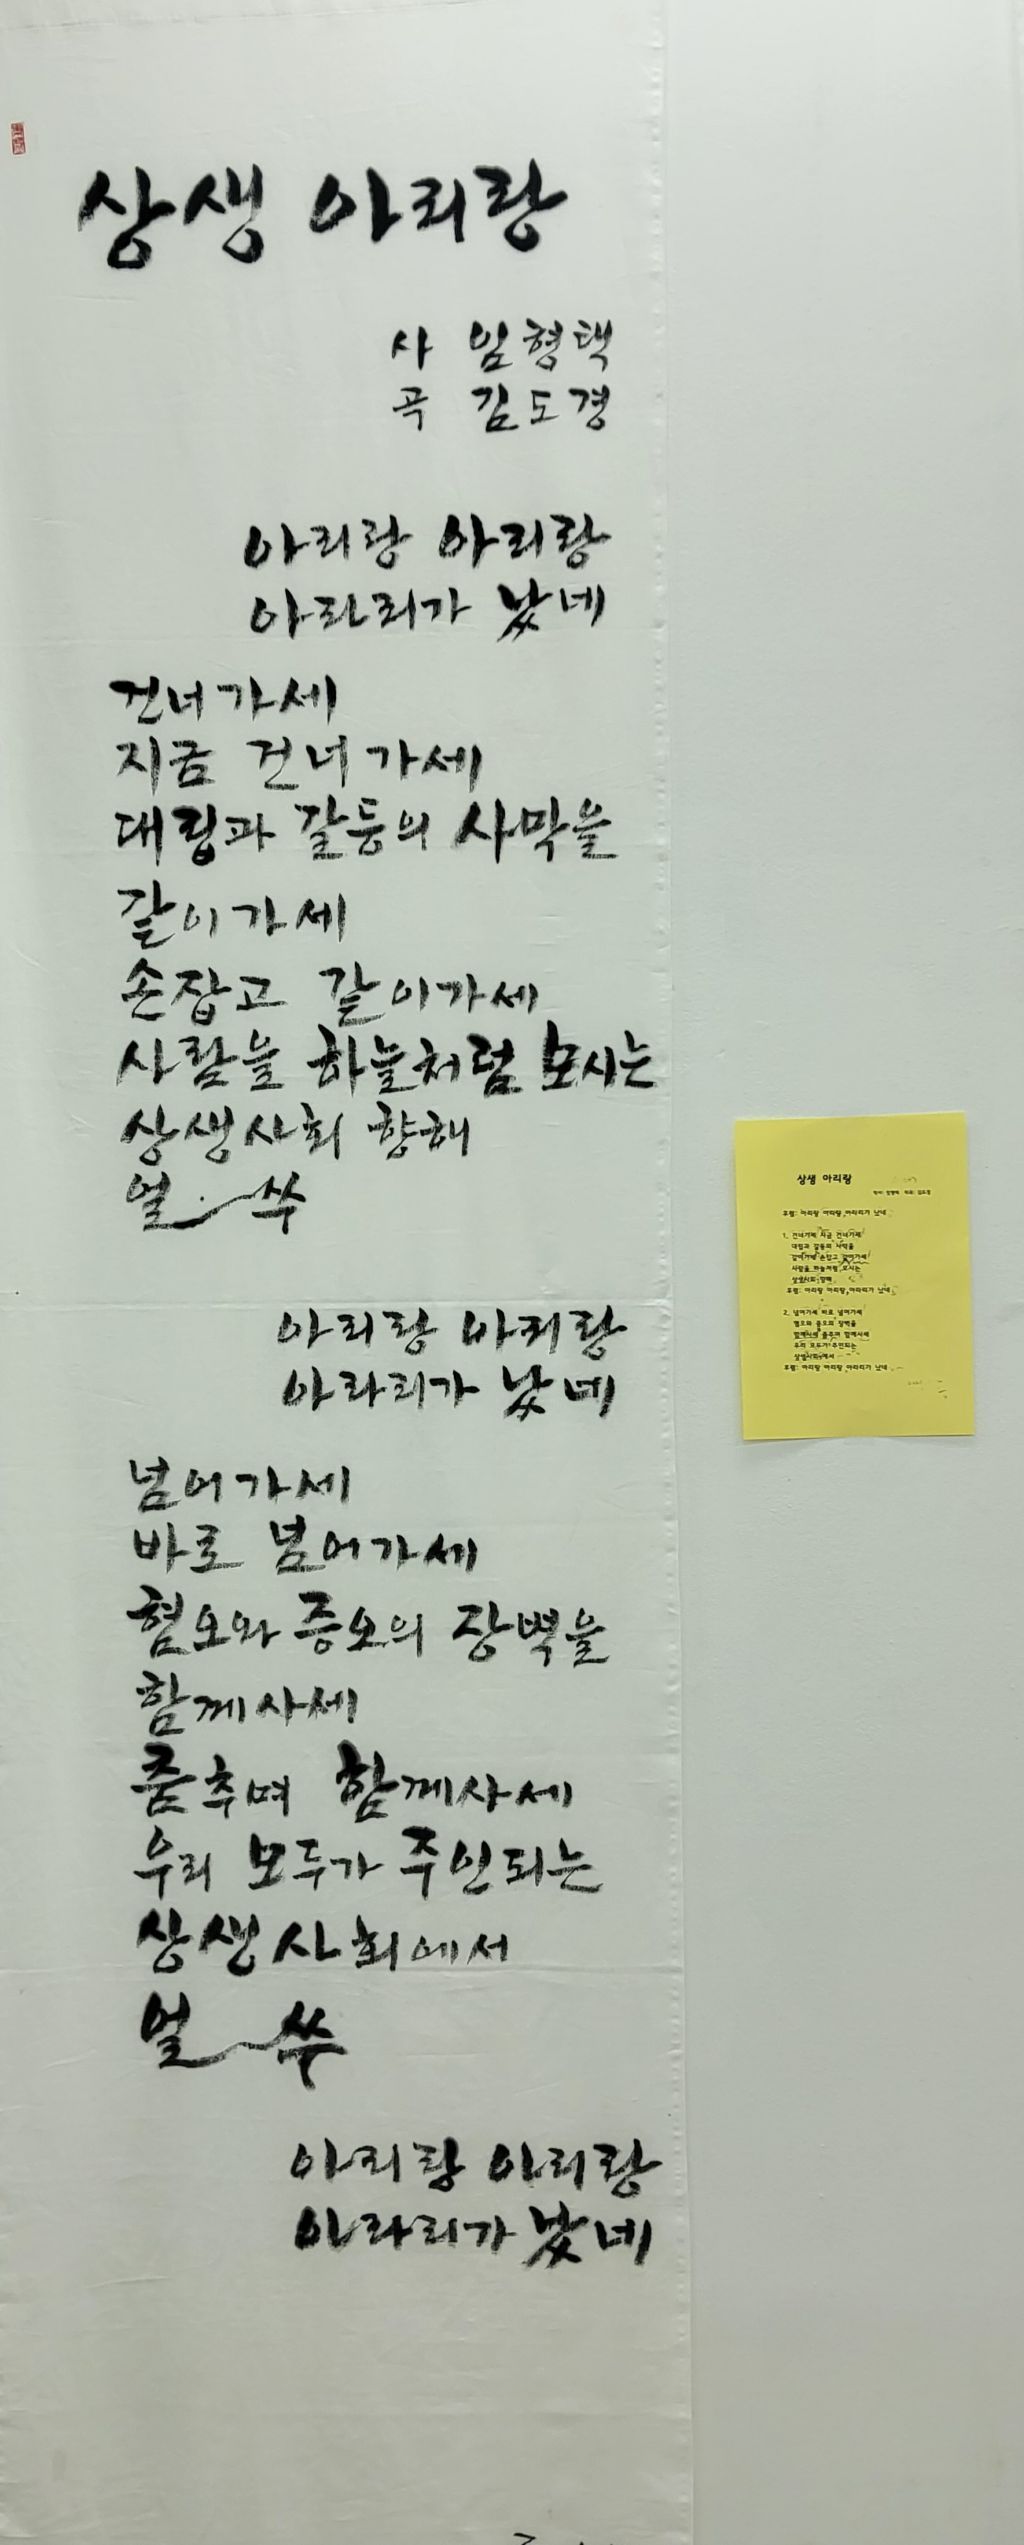 상생 아리랑
사 임형택
곡 김도경
아리랑 아리랑
아라리가 났네
건너가세
지금 건너가세
대립과 갈등의 사막을
같이가세
손잡고 같이가세
사람을 하늘처럼 모시는
상생사회 향해
얼~쑤
아리랑 아리랑
아라리가 났네
넘어가세
바로 넘어가세
혐오와 증오의 장벽을
함께사세
춤추며 함께사세
우리 모두가 주인되는
상생사회에서
얼~쑤
아리랑 아리랑
아라리가 났네
상생 아리랑
작사: 임형택 작곡: 김도경
후렴: 아리랑 아리랑 아라리가 났네
1. 건너가세 지금 건너가세
대립과 갈등의 사막을
같이가세 손잡고 같이가세
사람을 하늘처럼 모시는
상생사회 향해
후렴: 아리랑 아리랑 아라리가 났네
2. 넘어가세 바로 넘어가세
혐오와 증오의 장벽을
함께사세 춤추며 함께사세
우리 모두가 주인되는
상생사회에서
후렴: 아리랑 아리랑 아라리가 났네